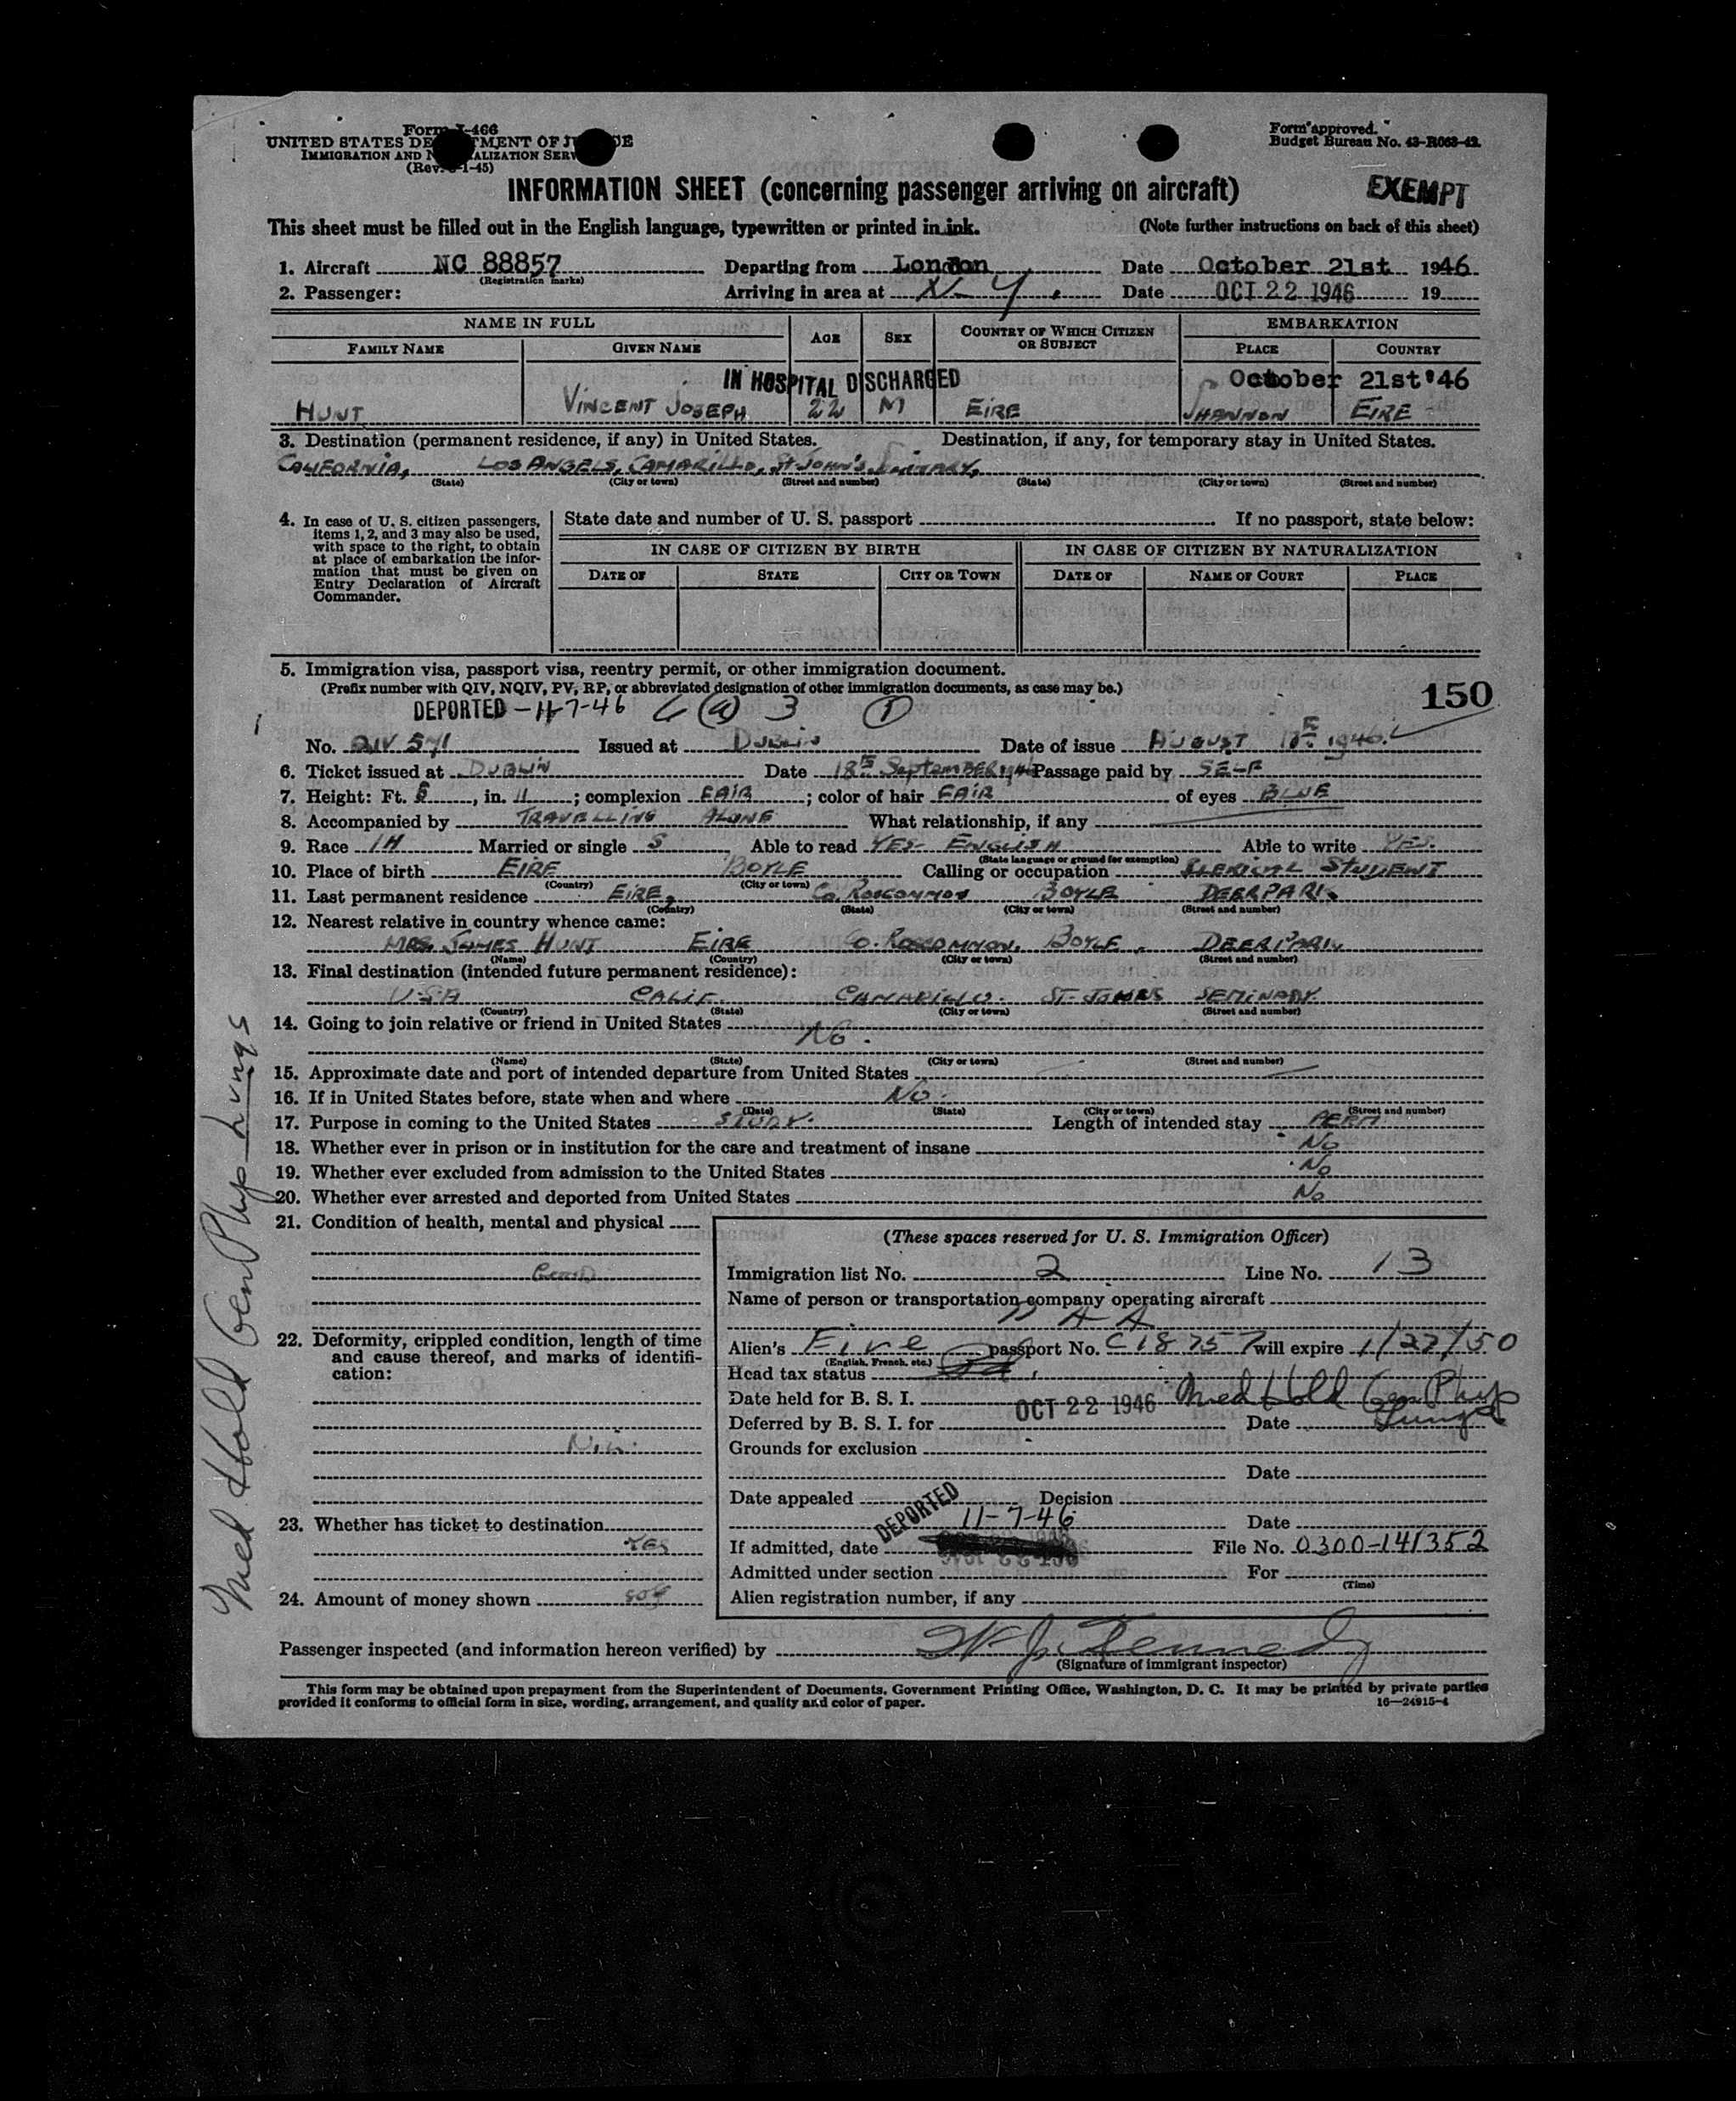 Form I-466
UNITED STATES DEPARTMENT OF JUSTICE
IMMIGRATION AND NATURALIZATION SERVICE
(Rev. -1-45)
Form approved.
Budget Bureau No. 43-R063-42.
INFORMATION SHEET (concerning passenger arriving on aircraft)
EXEMPT
This sheet must be filled out in the English language, typewritten or printed in ink. (Note further instructions on back of this sheet)
1. Aircraft NC 88857 Departing from London Date October 21st 1946
(Registration marks)
2. Passenger: Arriving in area at N-Y. Date OCT 22 1946 19
NAME IN FULL AGE SEX COUNTRY OF WHICH CITIZEN OR SUBJECT EMBARKATION
FAMILY NAME GIVEN NAME PLACE COUNTRY
IN HOSPITAL DISCHARGED October 21st '46
HUNT VINCENT JOSEPH 22 M EIRE SHANNON EIRE
3. Destination (permanent residence, if any) in United States. Destination, if any, for temporary stay in United States.
CALIFORNIA, LOS ANGELS, CAMARILLO, ST JOHN'S
(State) (City or town) (Street and number) (State) (City or town) (Street and number)
4. In case of U. S. citizen passengers, items 1, 2, and 3 may also be used, with space to the right, to obtain at place of embarkation the information that must be given on Entry Declaration of Aircraft Commander.
State date and number of U. S. passport If no passport, state below:
IN CASE OF CITIZEN BY BIRTH IN CASE OF CITIZEN BY NATURALIZATION
DATE OF STATE CITY OR TOWN DATE OF NAME OF COURT PLACE
5. Immigration visa, passport visa, reentry permit, or other immigration document.
(Prefix number with QIV, NQIV, PV, RP, or abbreviated designation of other immigration documents, as case may be.)
150
DEPORTED - 11-7-46 6 (a) 3 (1)
No. QIV 571 Issued at DUBLIN Date of issue AUGUST 1946
6. Ticket issued at DUBLIN Date 18TH SEPTEMBER 1946 Passage paid by SELF
7. Height: Ft. 5, in. 11; complexion FAIR; color of hair FAIR of eyes BLUE
8. Accompanied by TRAVELLING ALONE What relationship, if any
9. Race IH Married or single S Able to read YES ENGLISH Able to write YES.
(State language or ground for exemption)
10. Place of birth EIRE BOYLE Calling or occupation CLERICAL STUDENT
(Country) (City or town)
11. Last permanent residence EIRE, CO. ROSCOMMON BOYLE DEERPARK
(Country) (State) (City or town) (Street and number)
12. Nearest relative in country whence came:
MRS. JAMES HUNT EIRE CO. ROSCOMMON. BOYLE. DEERPARK
(Name) (Country) (City or town) (Street and number)
13. Final destination (intended future permanent residence):
USA CALIF. CAMARILLO. ST. JOHNS SEMINARY
(Country) (State) (City or town) (Street and number)
14. Going to join relative or friend in United States
No.
(Name) (State) (City or town) (Street and number)
15. Approximate date and port of intended departure from United States
16. If in United States before, state when and where No.
(Date) (State) (City or town) (Street and number)
17. Purpose in coming to the United States STUDY. Length of intended stay PERM.
18. Whether ever in prison or in institution for the care and treatment of insane No
19. Whether ever excluded from admission to the United States No
20. Whether ever arrested and deported from United States No
21. Condition of health, mental and physical
Good
22. Deformity, crippled condition, length of time and cause thereof, and marks of identification:
NIL.
23. Whether has ticket to destination
YES
24. Amount of money shown
(These spaces reserved for U. S. Immigration Officer)
Immigration list No. 2 Line No. 13
Name of person or transportation company operating aircraft
P A A
Alien's Eire passport No. C18757 will expire 1/27/50
(English, French, etc.)
Head tax status
Date held for B. S. I. OCT 22 1946 Med Hold Gen Phys Lungs
Deferred by B. S. I. for Date
Grounds for exclusion
Date
Date appealed Decision
DEPORTED 11-7-46 Date
If admitted, date File No. 0300-141352
Admitted under section For
(Time)
Alien registration number, if any
Passenger inspected (and information hereon verified) by Kennedy
(Signature of immigrant inspector)
This form may be obtained upon prepayment from the Superintendent of Documents, Government Printing Office, Washington, D. C. It may be printed by private parties
provided it conforms to official form in size, wording, arrangement, and quality and color of paper. 16—24915-4
Med Hold Gen Phys Lungs